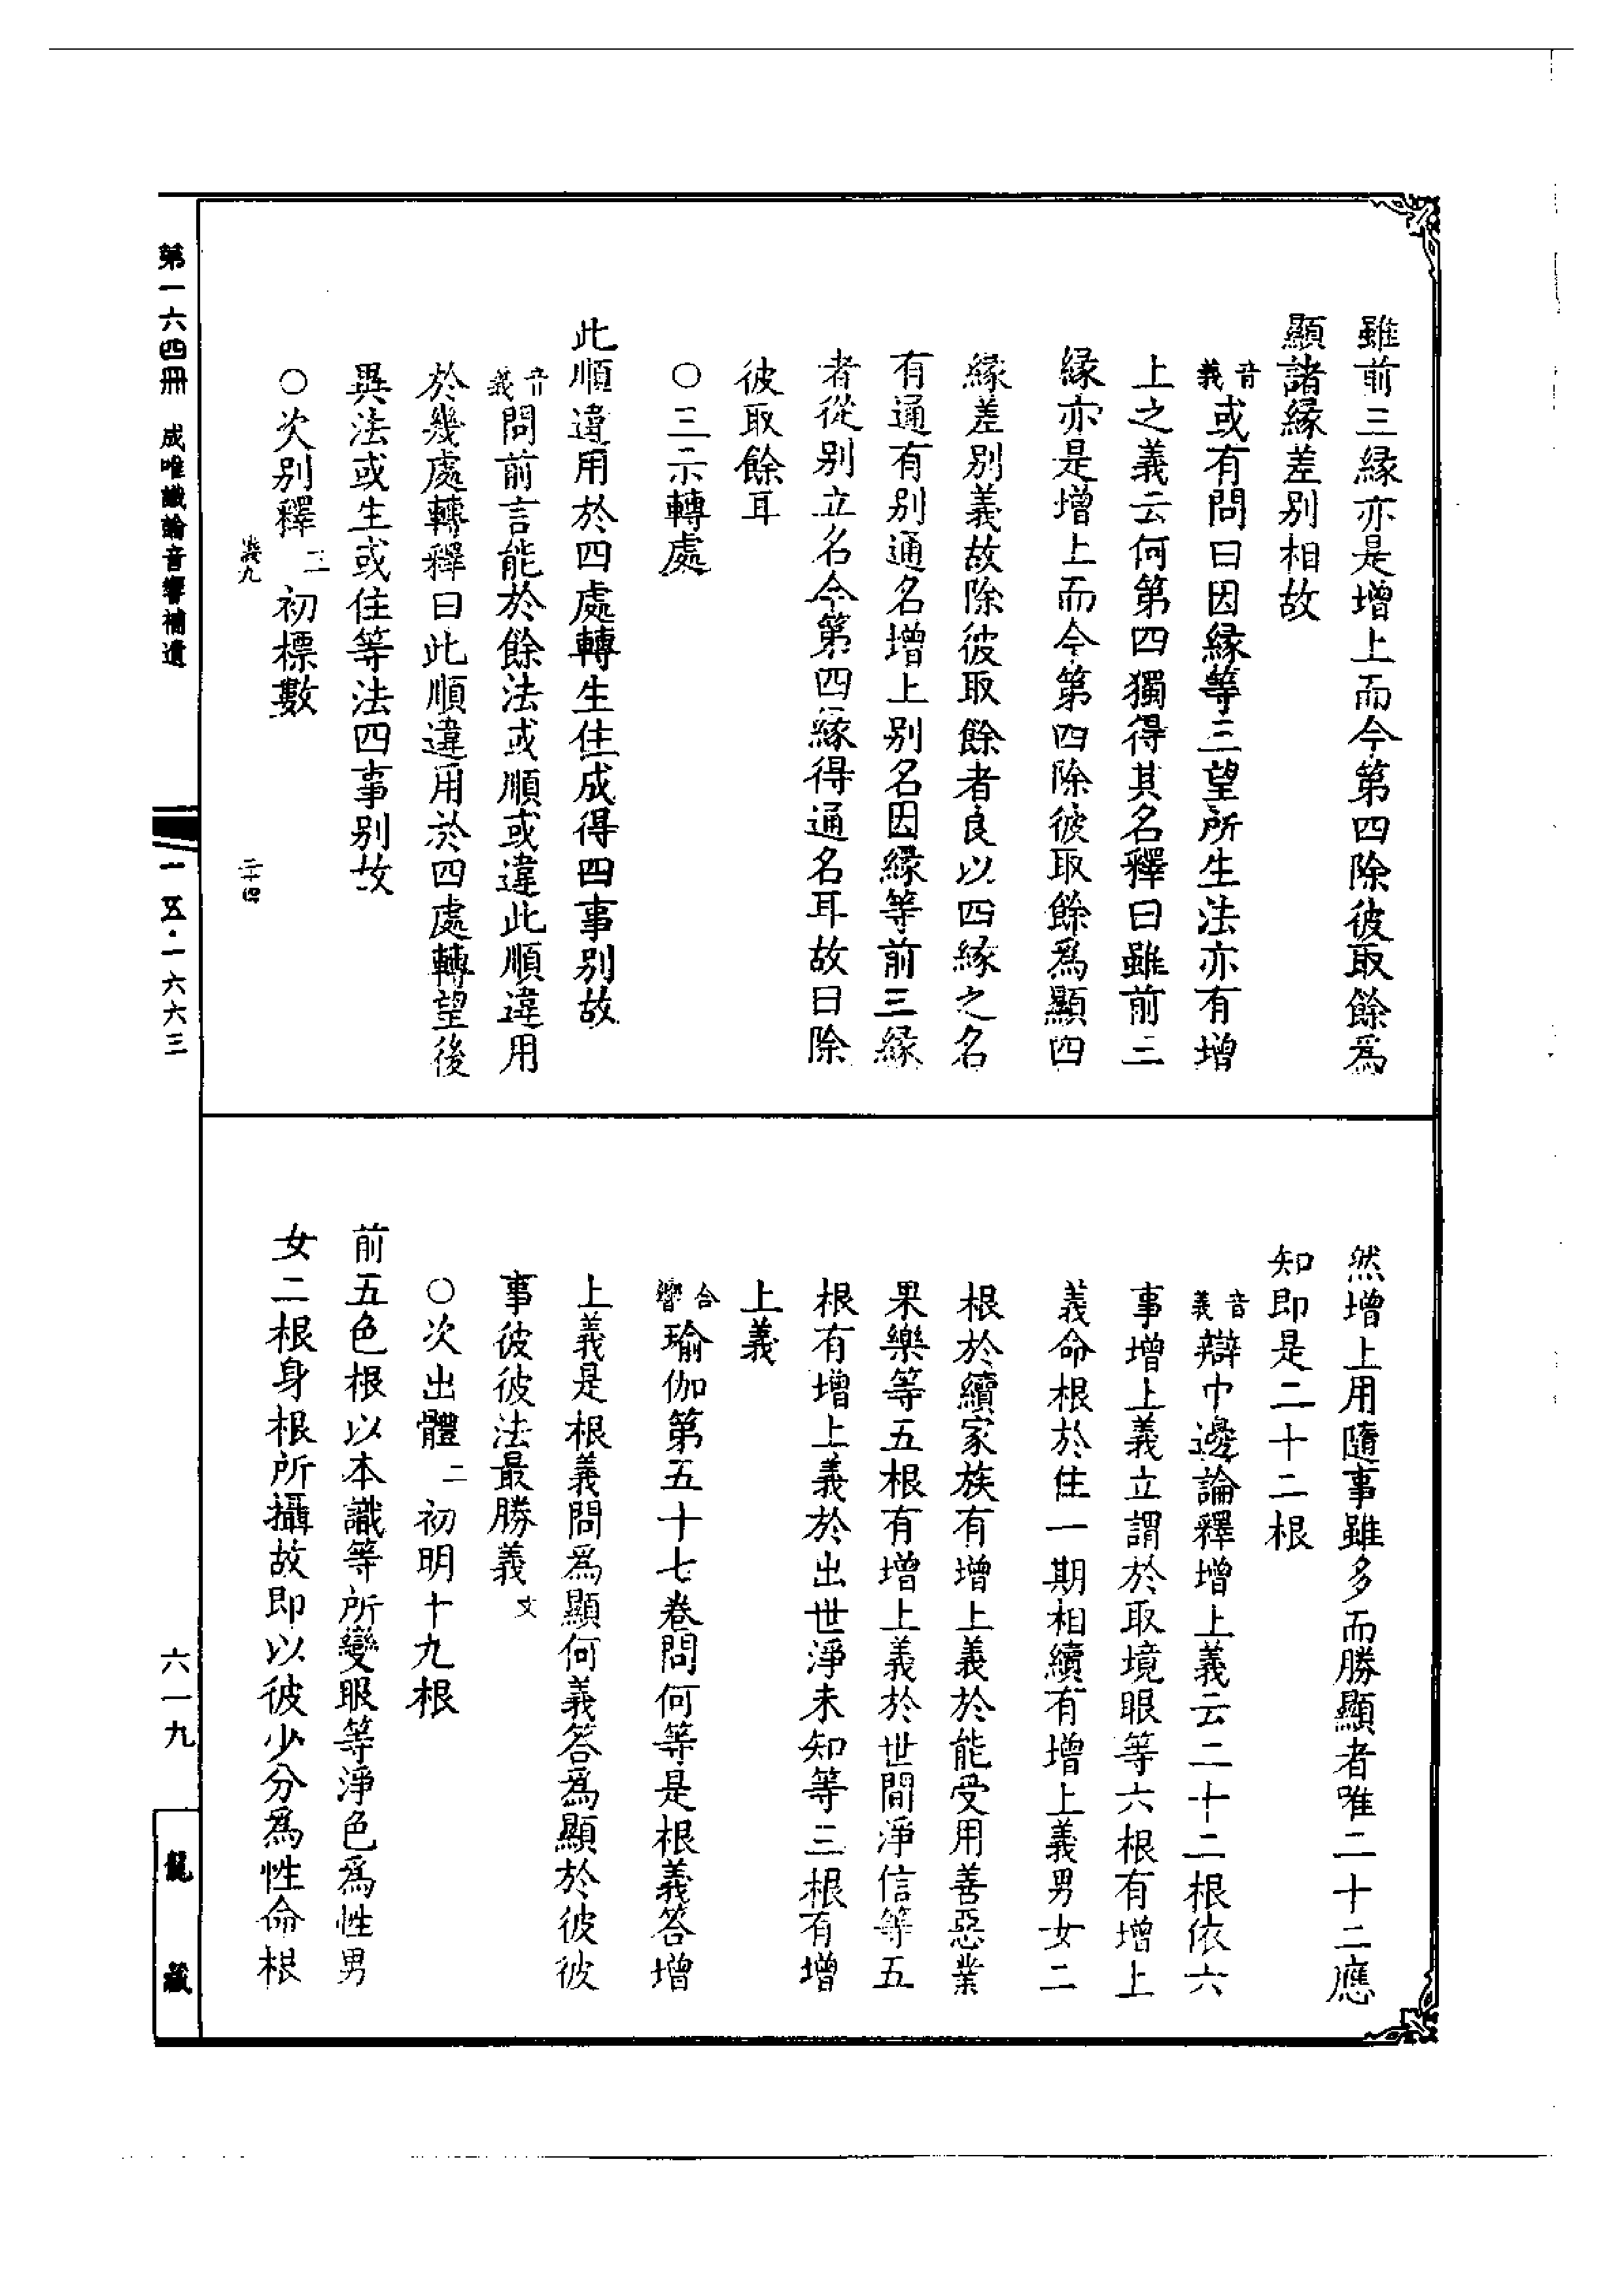 雖前三緣亦是增上而今第四除彼取餘爲
顯諸緣差別相故
音義或有問曰因緣等三望所生法亦有增
上之義云何第四獨得其名釋曰雖前三
緣亦是增上而今第四除彼取餘爲顯四
緣差別義故除彼取餘者良以四緣之名
有通有別通名增上別名因緣等前三緣
者從別立名今第四緣得通名耳故曰除
彼取餘耳
○三示轉處
此順違用於四處轉生住成得四事別故
音義問前言能於餘法或順或違此順違用
於幾處轉釋曰此順違用於四處轉望後
異法或生或住等法四事別故
○次別釋二初標數
然增上用隨事雖多而勝顯者唯二十二應
知即是二十二根
音義辯中邊論釋增上義云二十二根依六
事增上義立謂於取境眼等六根有增上
義命根於住一期相續有增上義男女二
根於續家族有增上義於能受用善惡業
果樂等五根有增上義於世間淨信等五
根有增上義於出世淨未知等三根有增
上義
合響瑜伽第五十七卷問何等是根義答增
上義是根義問爲顯何義答爲顯於彼彼
事彼彼法最勝義文
○次出體二初明十九根
前五色根以本識等所變眼等淨色爲性男
女二根身根所攝故即以彼少分爲性命根
第一六四冊 成唯識論音響補遺
一一五·一六六三
六一九
龍藏